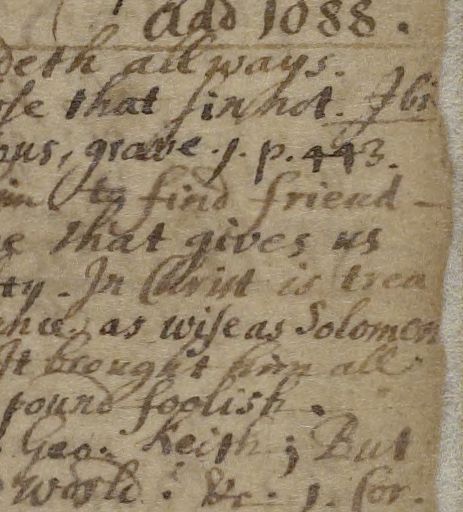 Add 1088.
deth allways.
se that sin not. Ibi
ous, grave. 1. p. 443.
to find friend
e that gives us
ty. In Christ is trea
as wise as Solomon
It brought him all
pound foolish.
Geo. Keith; But
world: &c. 1. for.